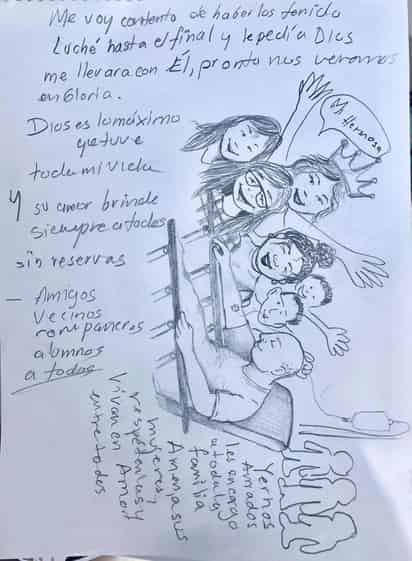 Me voy contento de haberlos tenido
Luché hasta el final y le pedí a Dios
me llevara con Él, pronto nos veremos
en Gloria.
Dios es lo máximo
que tuve
toda mi vida
Y su amor brinde
siempre a todos
sin reservas
— Amigos
Vecinos
compañeros
alumnos
a todos
Mi Hermosa
Yernos
Amados
les encargo
a toda la
familia
Amen a sus
mujeres,
respetenlas y
Vivan en Amor
entre todos